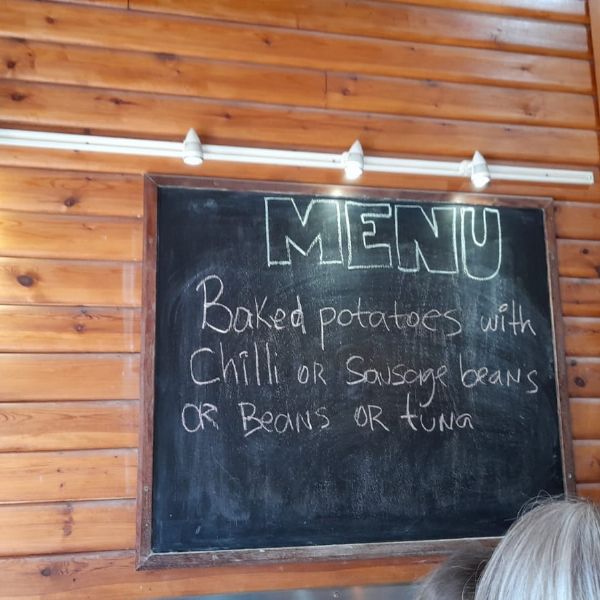 MENU
Baked potatoes with
Chilli OR Sausage beans
OR Beans OR tuna